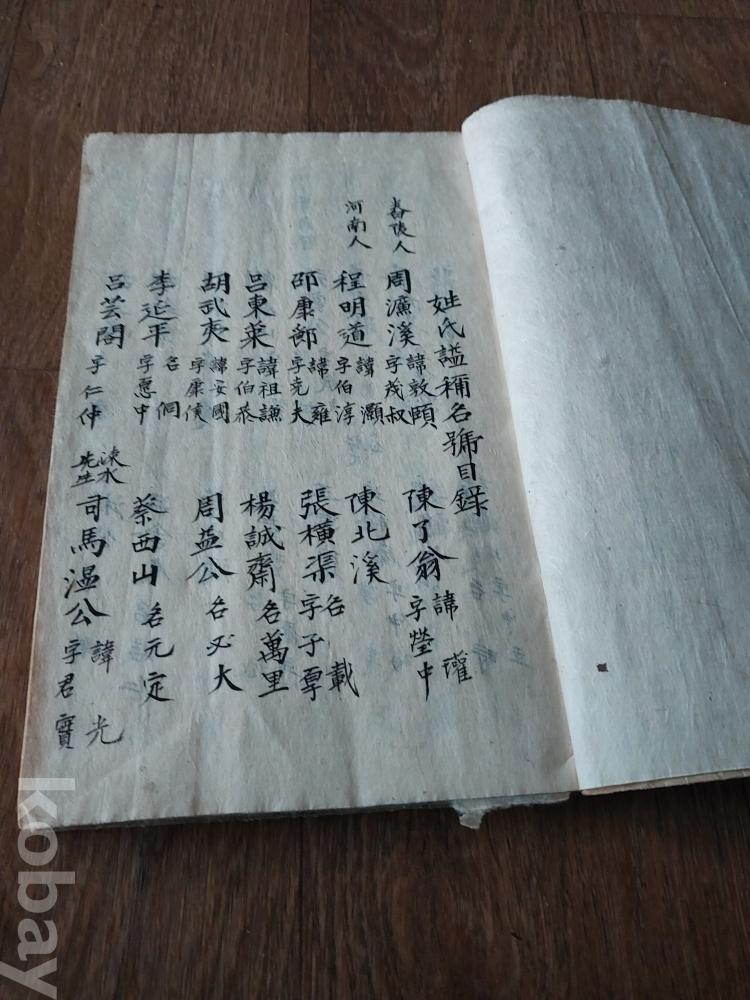 姓氏謚稱名號目錄
舂陵人 周濂溪 諱敦頤 字茂叔 陳了翁 諱瓘 字瑩中
河南人 程明道 諱灝 字伯淳 陳北溪
邵康節 諱雍 字堯夫 張橫渠 名載 字子厚
呂東萊 諱祖謙 字伯恭 楊誠齋 名萬里
胡武夷 諱安國 字康侯 周益公 名必大
李延平 名侗 字愿中 蔡西山 名元定
呂芸閣 字仁仲 涑水先生 司馬溫公 諱光 字君實
kobay